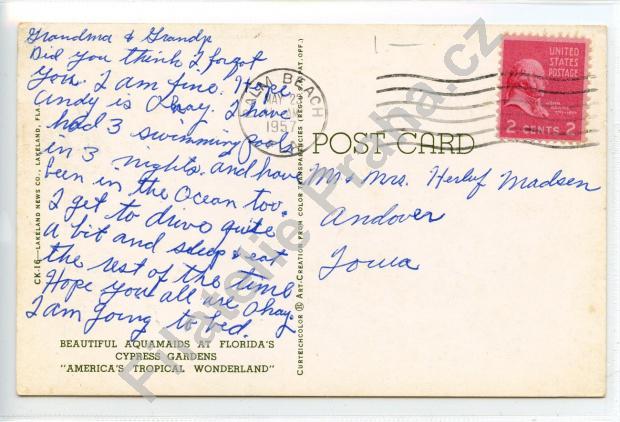 Grandma & Grandpa
Did you think I forgot
you. I am fine. Hope
Andy is Okay. I have
had 3 swimming pools
in 3 nights and have
been in the Ocean too.
I get to drive quite
a bit and sleep & eat
the rest of the time
Hope you all are Okay.
I am going to bed.
BEAUTIFUL AQUAMAIDS AT FLORIDA'S
CYPRESS GARDENS
"AMERICA'S TROPICAL WONDERLAND"
CK.16—LAKELAND NEWS CO., LAKELAND, FLA.
PALM BEACH
MAY 29
1957
CURTEICHCOLOR ® ART-CREATION FROM COLOR TRANSPARENCIES (REG. U.S. PAT. OFF.)
POST CARD
UNITED
STATES
POSTAGE
2 CENTS 2
Mr & Mrs. Herluf Madsen
Andover
Iowa
Filatelie Praha.cz